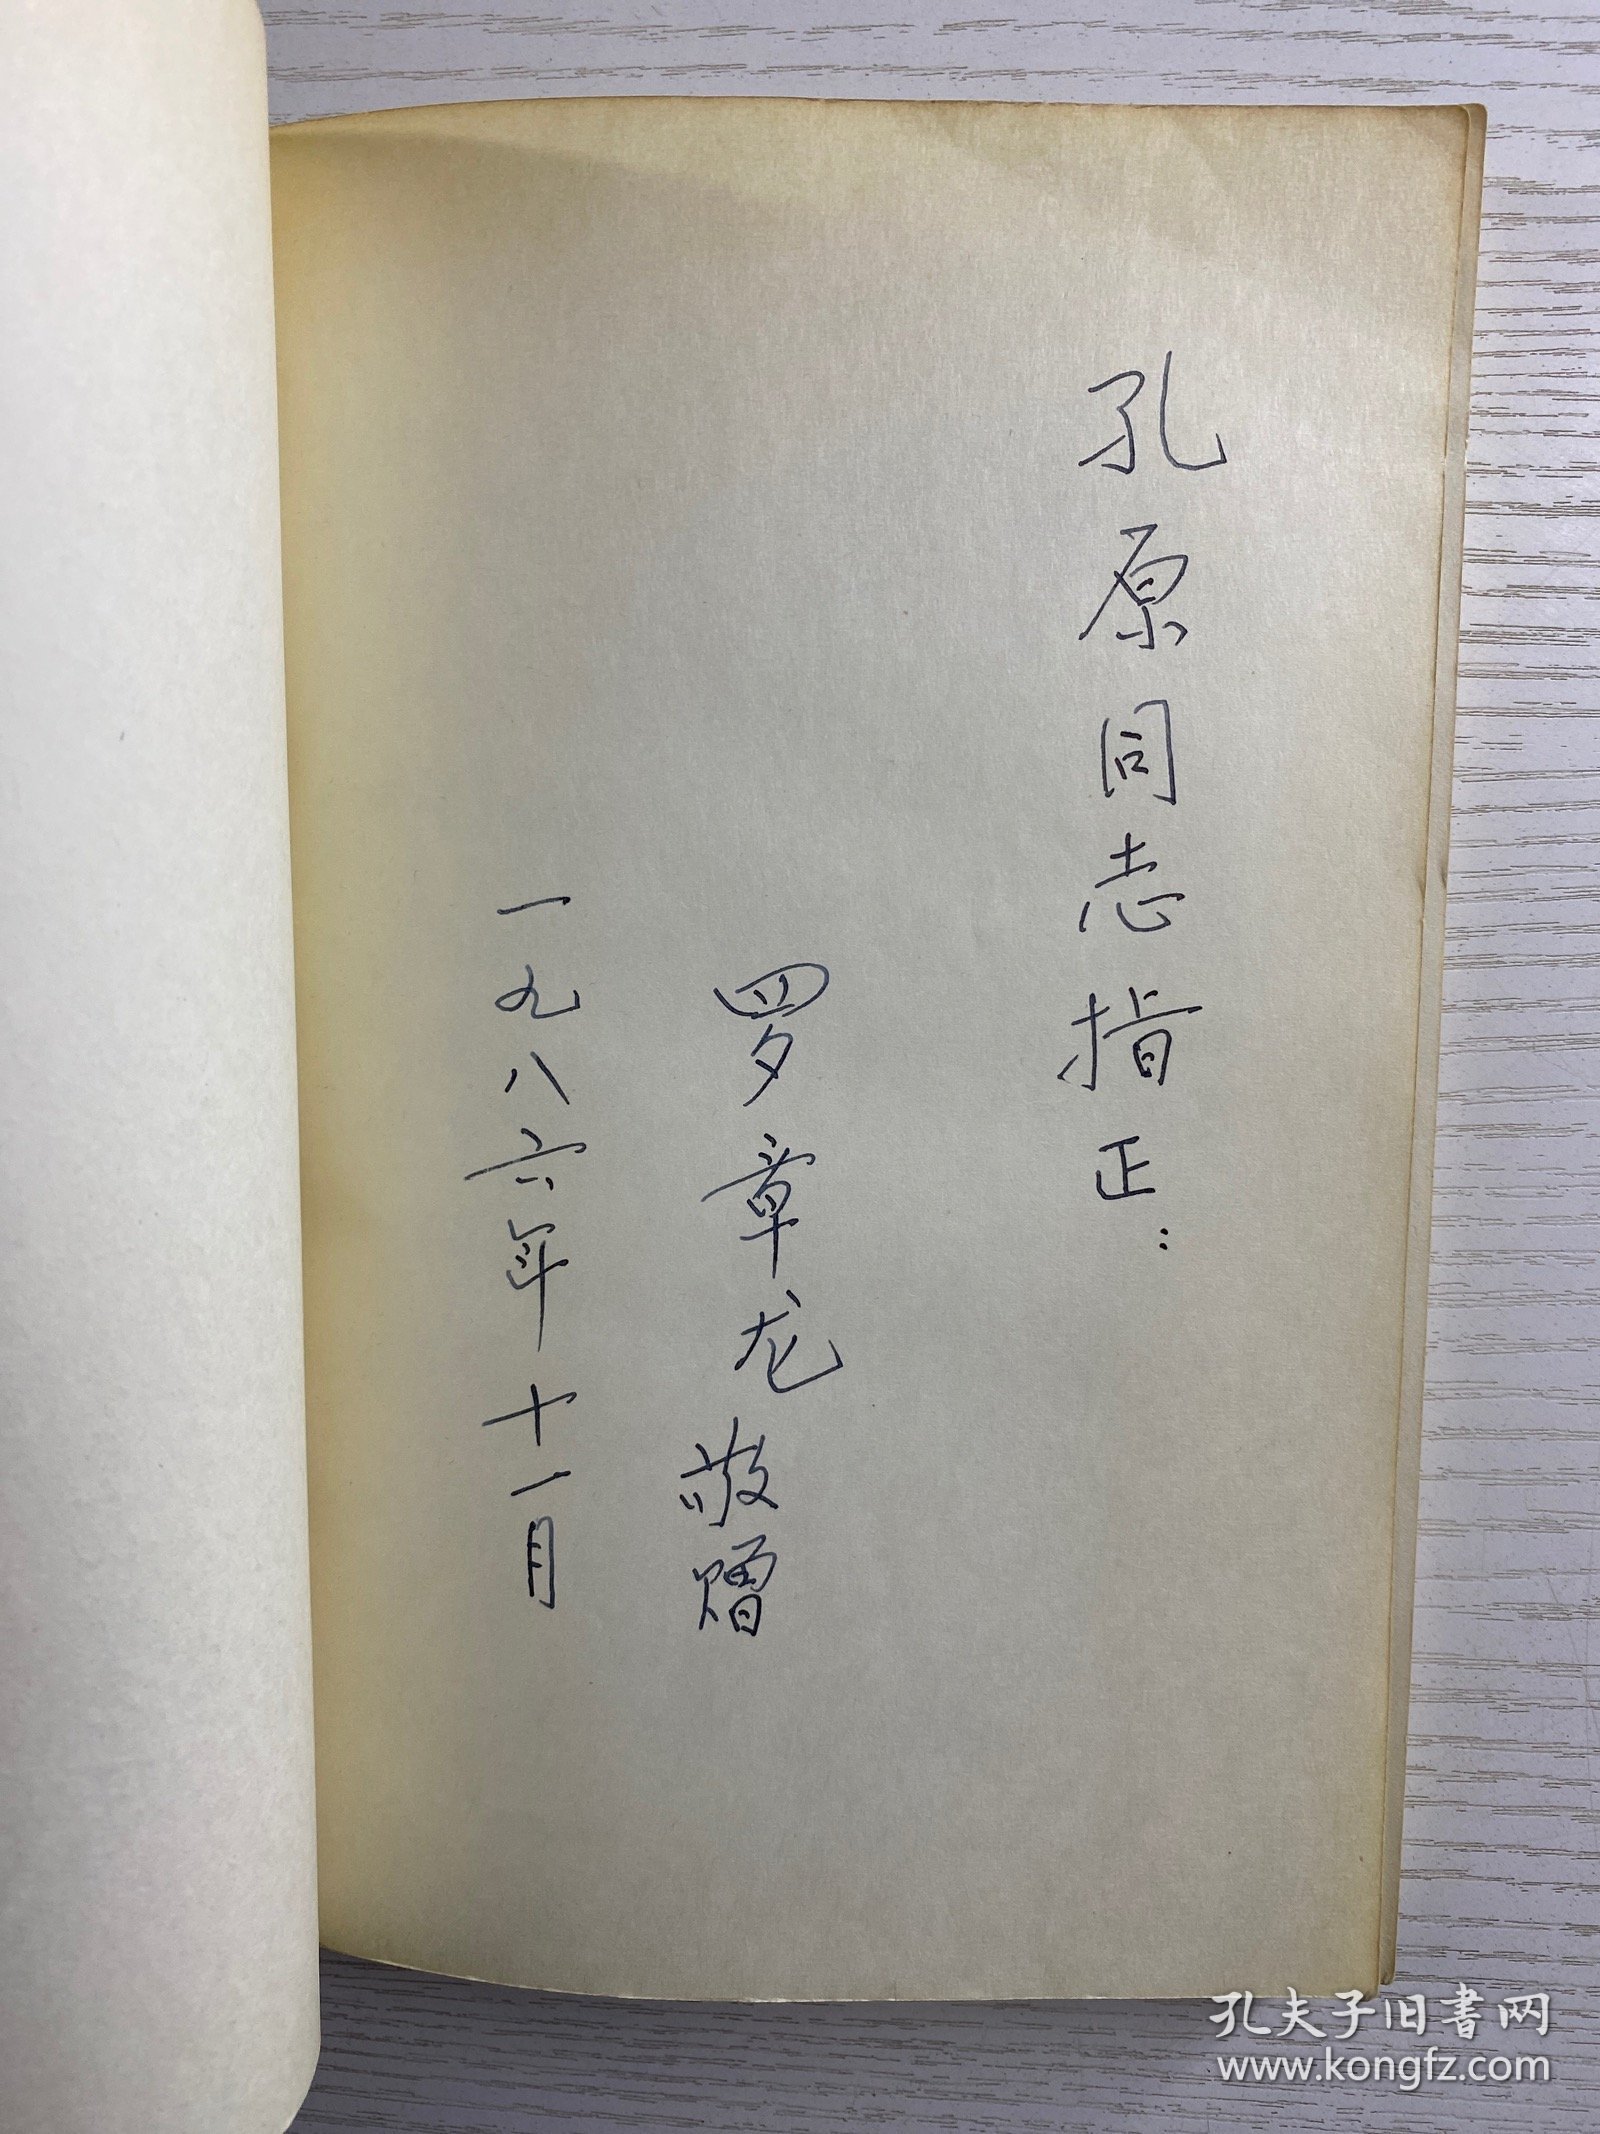 孔原同志指正：
罗章龙敬赠
一九八六年十一月
孔夫子旧书网
www.kongfz.com